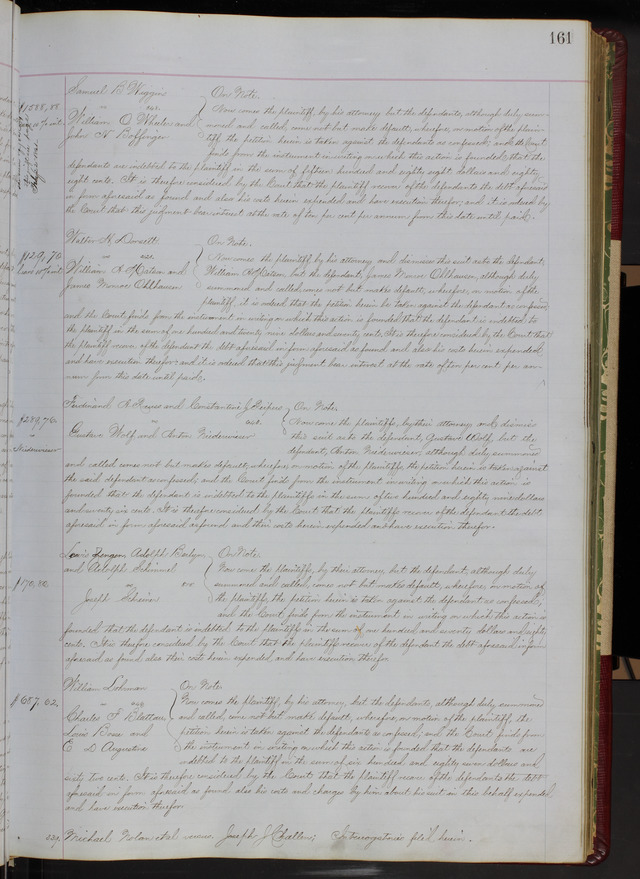 161
Samuel B Wiggins } On Note.
vs.
William O Wheeler and
John H Boffinger
$1588,88
Now comes the plaintiff, by his attorney but the defendants, although duly sum-
moned and called, come not but make default, wherefore, on motion of the plain-
tiff the petition herein is taken against the defendants as confessed; and the Court
finds from the instrument in writing on which this action is founded, that the
defendants are indebted to the plaintiff in the sum of fifteen hundred and eighty eight dollars and eighty
eight cents. It is therefore considered by the Court that the plaintiff recover of the defendants the debt aforesaid
in form aforesaid as found and also his costs herein expended and have execution therefor; and it is ordered by
the Court that this judgment bear interest at the rate of ten per cent per annum from this date until paid.
Walter H. Dorsett } On Note.
vs.
William R Matson and
James Monroe Ohlhausen
$129,70
Now comes the plaintiff by his attorney and dismisses this suit as to the defendant,
William R Matson but the defendant, James Monroe Ohlhausen, although duly
summoned and called comes not but makes default, wherefore, on motion of the
plaintiff, it is ordered that the petition herein be taken against the defendant as confessed
and the Court finds from the instrument in writing on which this action is founded that the defendant is indebted to
the plaintiff in the sum of one hundred and twenty nine dollars and seventy cents. It is therefore considered by the Court that
the plaintiff recover of the defendant the debt aforesaid in form aforesaid as found and also his costs herein expended
and have execution therefor: and it is ordered that this judgment bear interest at the rate of ten per cent per an-
num from this date until paid.
and Constantine } On Note.
vs.
Gustave Wolf and Anton Niederweiser
$289,76.
Niederweiser
Now come the plaintiffs, by their attorney and dismiss
this suit as to the defendant, Gustave Wolf, but the
defendant, Anton Niederweiser, although duly summoned
and called comes not but makes default, wherefore, on motion of the plaintiffs, the petition herein is taken against
the said defendant as confessed; and the Court finds from the instrument in writing on which this action is
founded that the defendant is indebted to the plaintiffs in the sum of two hundred and eighty nine dollars
and seventy six cents. It is therefore considered by the Court that the plaintiffs recover of the defendant the debt
aforesaid in form aforesaid as found and their costs herein expended and have execution therefor.
Louis Adolph
and Adolph } On Note.
vs
Joseph Scheiner
$170,80.
Now come the plaintiffs, by their attorney, but the defendant, although duly
summoned and called, comes not but makes default, wherefore, on motion of
the plaintiffs, the petition herein is taken against the defendant as confessed;
and the Court finds from the instrument in writing on which this action is
founded that the defendant is indebted to the plaintiffs in the sum of one hundred and seventy dollars and eighty
cents. It is therefore considered by the Court that the plaintiffs recover of the defendant the debt aforesaid in form
aforesaid as found also their costs herein expended, and have execution therefor.
William Lohman } On Note.
vs
Charles F Blattau
Louis Bose and
E D Augustine
$687,62.
Now comes the plaintiff, by his attorney, but the defendants, although duly summoned
and called, come not but make default, wherefore, on motion of the plaintiff, the
petition herein is taken against the defendants as confessed, and the Court finds from
the instrument in writing on which this action is founded that the defendants are
indebted to the plaintiff in the sum of six hundred and eighty seven dollars and
sixty two cents. It is therefore considered by the Court that the plaintiff recover of the defendants the debt
aforesaid in form aforesaid as found also his costs and charges by him about his suit in this behalf expended
and have execution therefor.
Michael Nolan et al versus Joseph J Challen; Interrogatories filed herein.